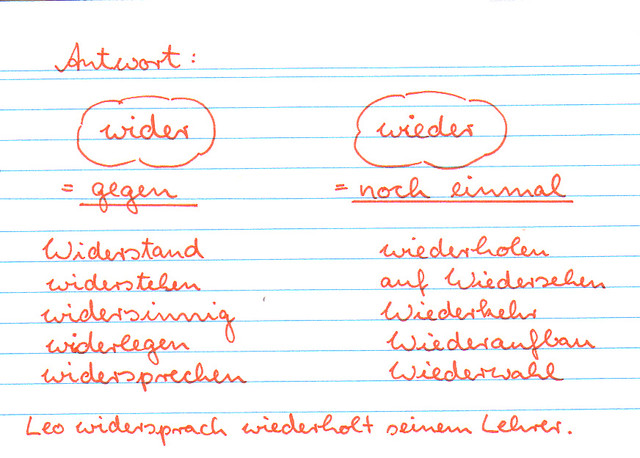 Antwort:
wider wieder
= gegen = noch einmal
Widerstand wiederholen
widerstehen auf Wiedersehen
widersinnig Wiederkehr
widerlegen Wiederaufbau
widersprechen Wiederwahl
Leo widersprach wiederholt seinem Lehrer.